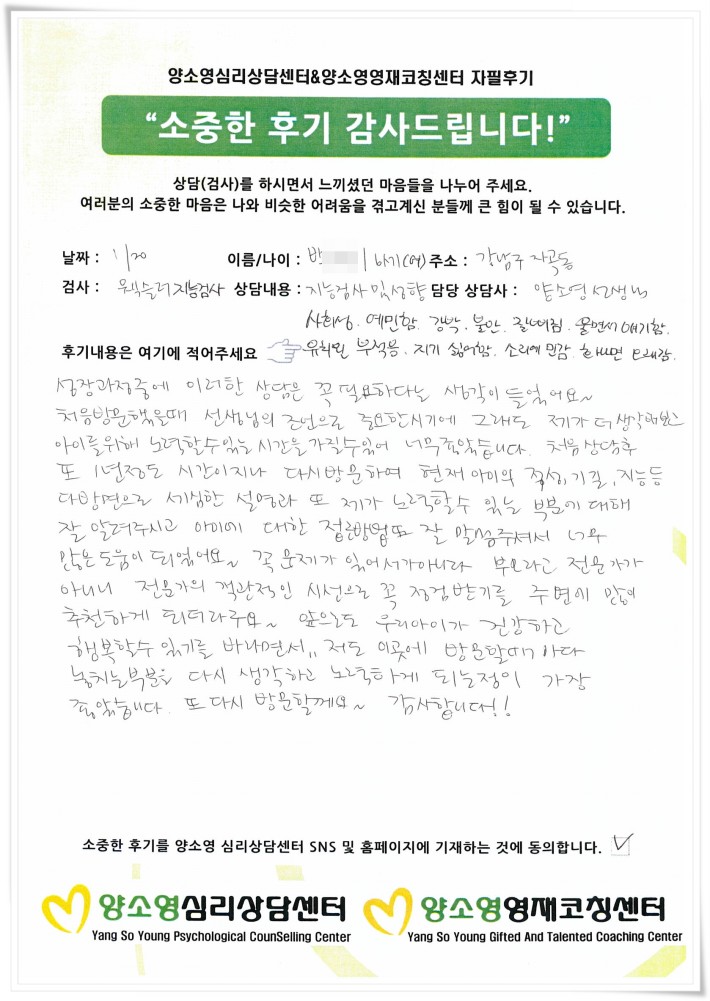 양소영심리상담센터&양소영영재코칭센터 자필후기
“소중한 후기 감사드립니다!”
상담(검사)를 하시면서 느끼셨던 마음들을 나누어 주세요.
여러분의 소중한 마음은 나와 비슷한 어려움을 겪고계신 분들께 큰 힘이 될 수 있습니다.
날짜 : 1/20 이름/나이 : 박 / 6세(여) 주소 : 강남구 자곡동
검사 : 웩슬러지능검사 상담내용 : 지능검사 및 성향 담당 상담사 : 양소영 선생님
사회성. 예민함. 강박. 불안. 울면서 얘기함.
후기내용은 여기에 적어주세요 부적응. 지기 싫어함. 소리에 민감. 화내면 오래감.
성장과정중에 이러한 상담은 꼭 필요하다는 생각이 들었어요~
처음방문했을때 선생님의 조언으로 중요한시기에 그래도 제가 더 생각해보고
아이를위해 노력할수있는 시간을 가질수있어 너무좋았습니다. 처음상담후
또 1년정도 시간이지나 다시방문하여 현재 아이의 적성, 기질, 지능등
다방면으로 세심한 설명과 또 제가 노력할수 있는 부분에 대해
잘 알려주시고 아이에 대한 접근방법도 잘 말씀주셔서 너무
많은 도움이 되었어요~ 꼭 문제가 있어서가아니라 부모라고 전문가가
아니니 전문가의 객관적인 시선으로 꼭 점검받기를 주변에 많이
추천하게 되더라구요~ 앞으로도 우리아이가 건강하고
행복할수 있기를 바라면서,, 저도 이곳에 방문할때마다
놓치는부분을 다시 생각하고 노력하게 되는점이 가장
좋았습니다. 또 다시 방문할께요~ 감사합니다!!
소중한 후기를 양소영 심리상담센터 SNS 및 홈페이지에 기재하는 것에 동의합니다. ✓
양소영심리상담센터 양소영영재코칭센터
Yang So Young Psychological CounSelling Center Yang So Young Gifted And Talented Coaching Center